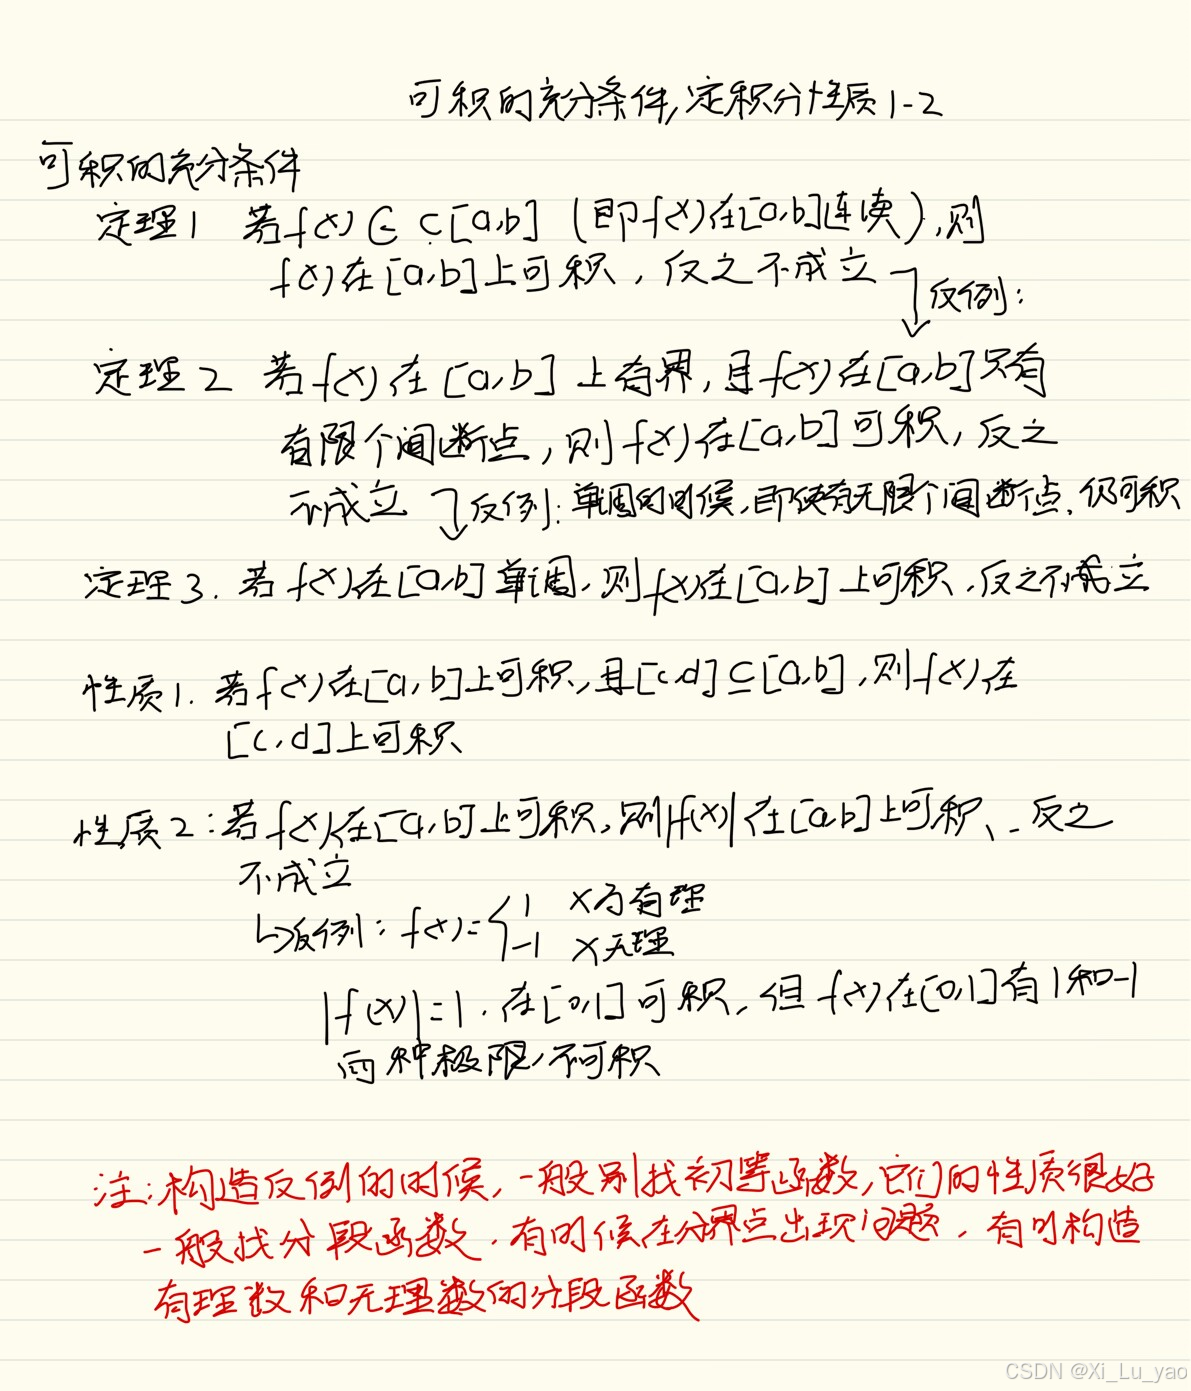 可积的充分条件,定积分性质1-2
可积的充分条件
定理1 若f(x)∈C[a,b](即f(x)在[a,b]连续),则
f(x)在[a,b]上可积,反之不成立
反例:
定理2 若f(x)在[a,b]上有界,且f(x)在[a,b]只有
有限个间断点,则f(x)在[a,b]可积,反之
不成立 反例:单调的时候,即使有无限个间断点,仍可积
定理3.若f(x)在[a,b]单调,则f(x)在[a,b]上可积,反之不成立
性质1.若f(x)在[a,b]上可积,且[c,d]⊆[a,b],则f(x)在
[c,d]上可积
性质2:若f(x)在[a,b]上可积,则|f(x)|在[a,b]上可积、反之
不成立
↳反例:f(x)={1 x为有理
-1 x无理
|f(x)|=1.在[0,1]可积,但f(x)在[0,1]有1和-1
两种极限,不可积
注:构造反例的时候,一般别找初等函数,它们的性质很好
一般找分段函数,有时候在分界点出现问题,有时构造
有理数和无理数的分段函数
CSDN @Xi_Lu_yao